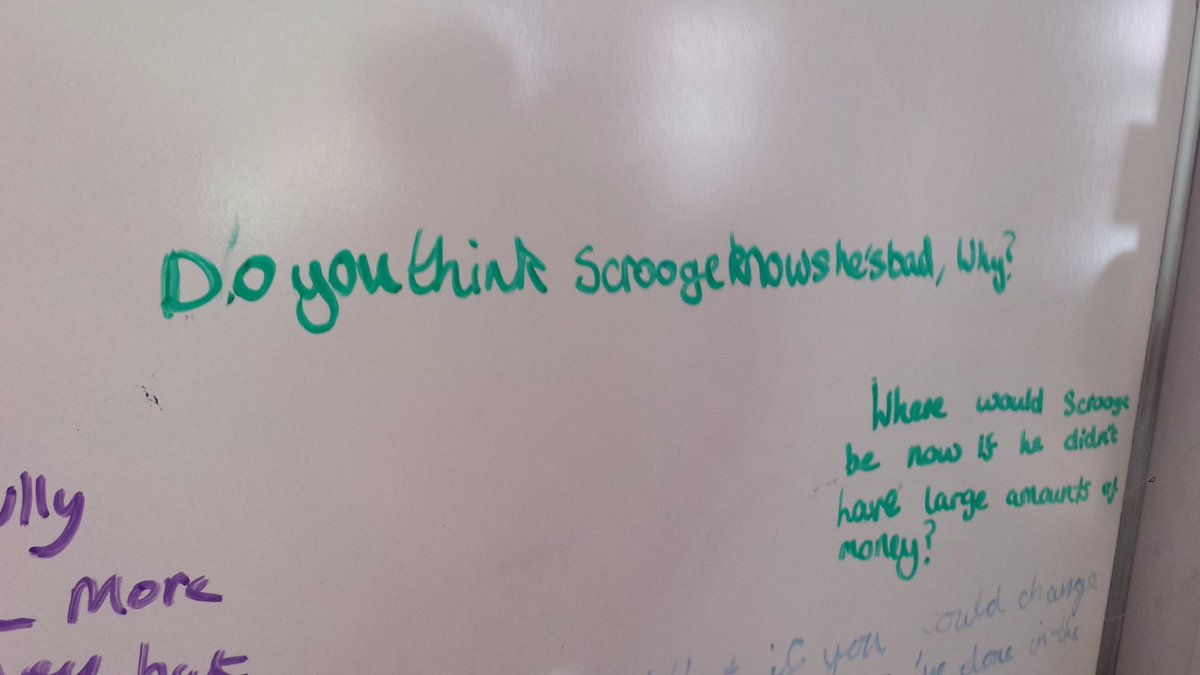 Do you think Scrooge knows he's bad, Why?
Where would Scrooge
be now if he didn't
have large amounts of
money?
ully
more
but
if you could change
done in the